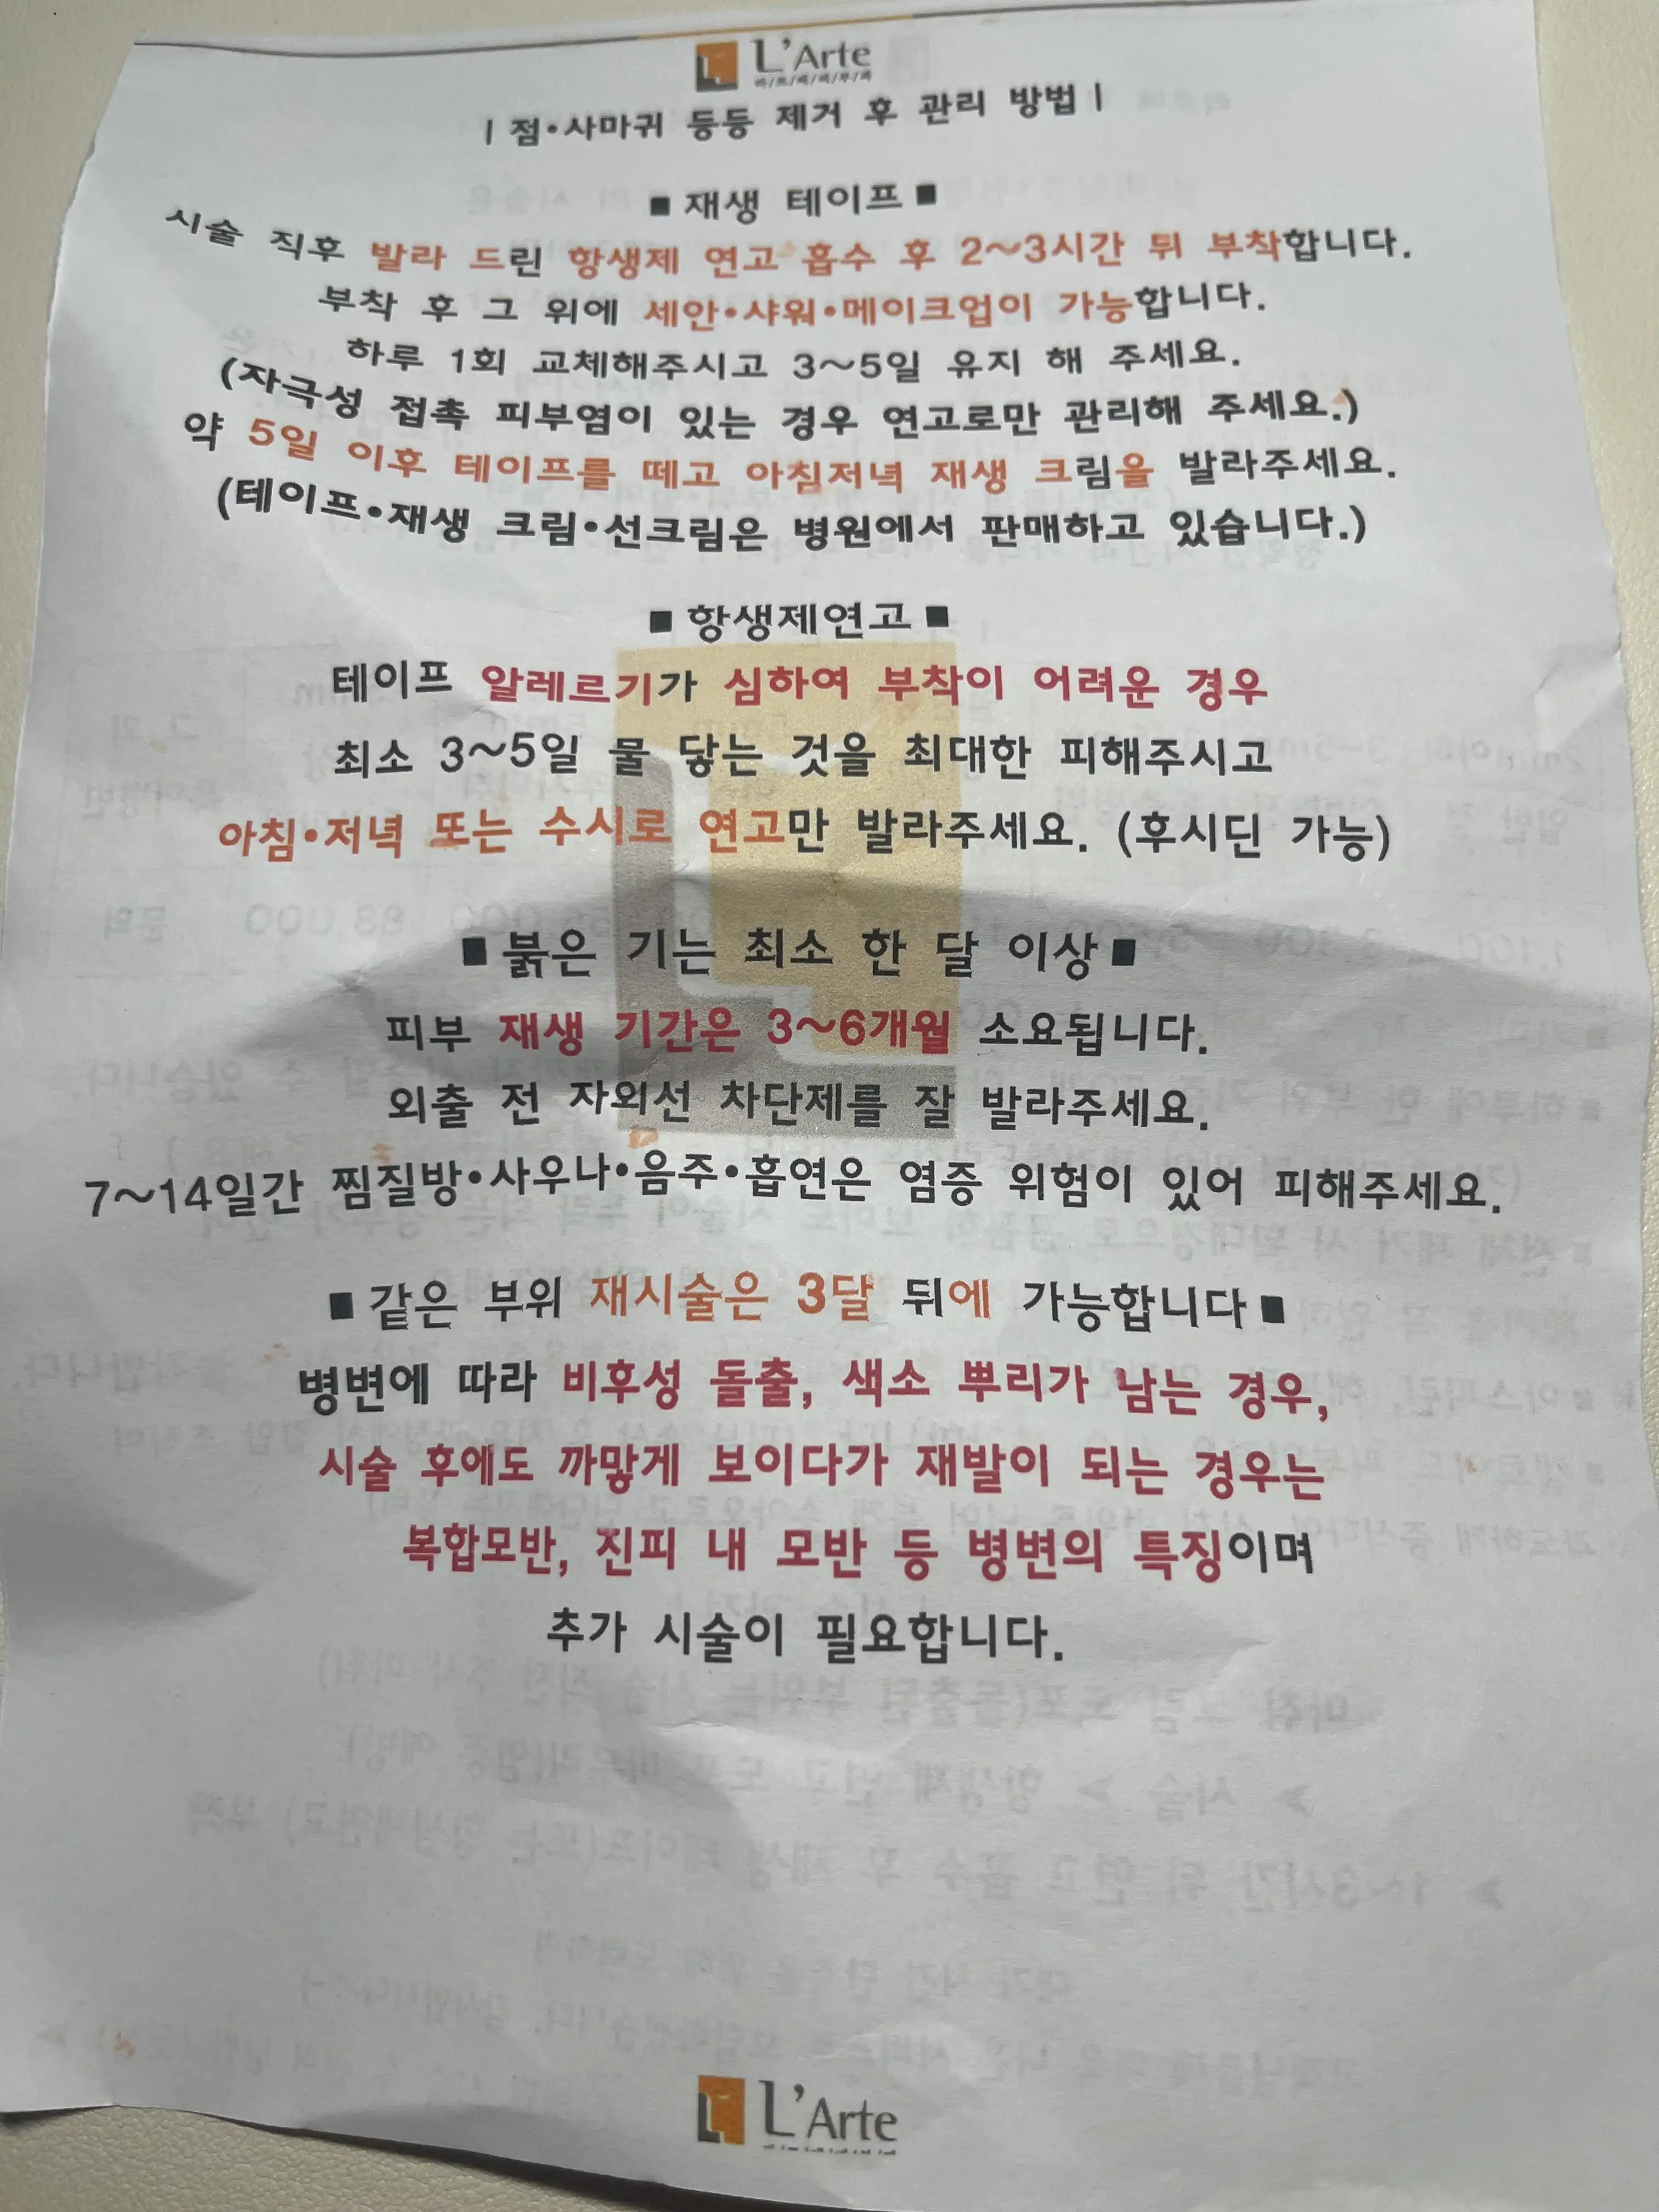 L'Arte
| 점·사마귀 등등 제거 후 관리 방법 |
■ 재생 테이프 ■
시술 직후 발라 드린 항생제 연고 흡수 후 2~3시간 뒤 부착합니다.
부착 후 그 위에 세안·샤워·메이크업이 가능합니다.
하루 1회 교체해주시고 3~5일 유지 해 주세요.
(자극성 접촉 피부염이 있는 경우 연고로만 관리해 주세요.)
약 5일 이후 테이프를 떼고 아침저녁 재생 크림을 발라주세요.
(테이프·재생 크림·선크림은 병원에서 판매하고 있습니다.)
■ 항생제연고 ■
테이프 알레르기가 심하여 부착이 어려운 경우
최소 3~5일 물 닿는 것을 최대한 피해주시고
아침·저녁 또는 수시로 연고만 발라주세요. (후시딘 가능)
■ 붉은 기는 최소 한 달 이상 ■
피부 재생 기간은 3~6개월 소요됩니다.
외출 전 자외선 차단제를 잘 발라주세요.
7~14일간 찜질방·사우나·음주·흡연은 염증 위험이 있어 피해주세요.
■ 같은 부위 재시술은 3달 뒤에 가능합니다 ■
병변에 따라 비후성 돌출, 색소 뿌리가 남는 경우,
시술 후에도 까맣게 보이다가 재발이 되는 경우는
복합모반, 진피 내 모반 등 병변의 특징이며
추가 시술이 필요합니다.
L'Arte